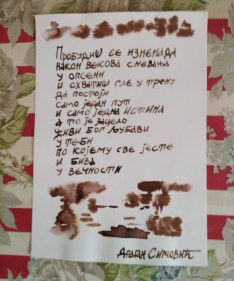 Пробудиш се изненада
након векова сневања
у опсени
и схватиш где у трену
да постоји
само један пут
и само једна истина
а то је зацело
живи Бог љубави
у теби
по којему све јесте
и бива
у вечности
Симовић